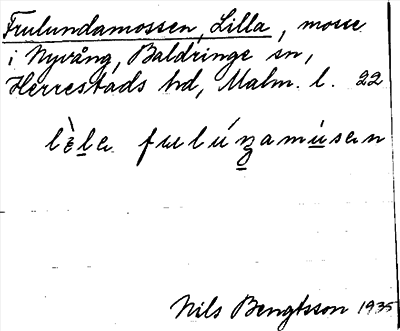 Frulundamossen, Lilla, mosse
i Nyvång, Baldringe sn,
Herrestads hd, Malm. l. 22
Nils Bengtsson 1935